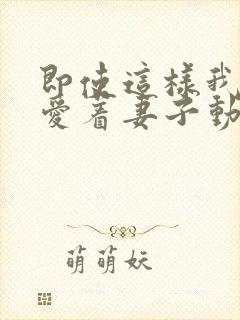 即使這樣我
愛着妻子動
萌萌妖